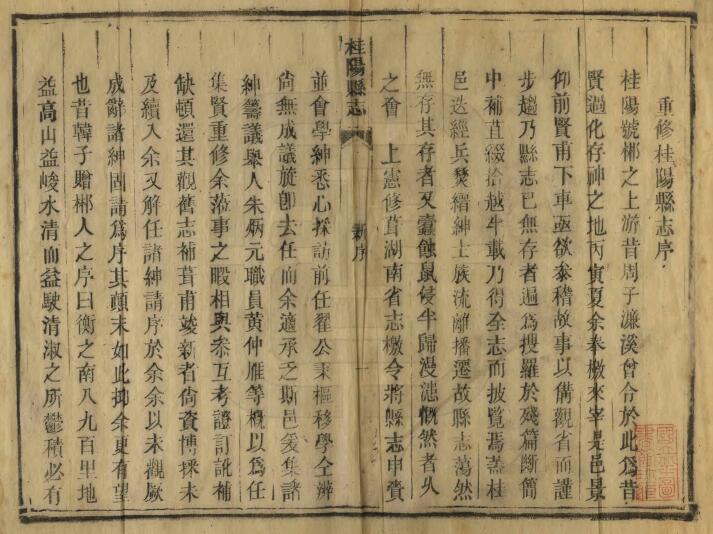 重修桂陽縣志序
桂陽號郴之上游昔周子濂溪曾令於此為昔
賢過化存神之地丙寅夏余奉檄來宰是邑景
仰前賢甫下車亟欲叅稽故事以備觀省而謹
步趨乃縣志已無存者遍為搜羅於殘篇斷簡
中補苴綴拾越半載乃得全志而披覽焉蓋桂
邑迭經兵燹縉紳士族流離播遷故縣志蕩然
無存其存者又蠹蝕鼠侵半歸漫漶慨然者久
之會 上憲修葺湖南省志檄令將縣志申賫
桂陽縣志
新序
並會學紳悉心採訪前任翟公秉樞移學仝辨
尚無成議旋卽去任而余適承乏斯邑爰集諸
紳籌議舉人朱炳元職員黃仲雁等概以為任
集賢重修余蒞事之暇相與叅互考證訂訛補
缺頓還其觀舊志補葺甫竣新者尙資博採未
及續入余又解任諸紳請序於余余以未觀厥
成辭諸紳固請為序其顛末如此抑余更有望
也昔韓子贈郴人之序曰衡之南八九百里地
益高山益峻水清而益駛清淑之所鬱積必有